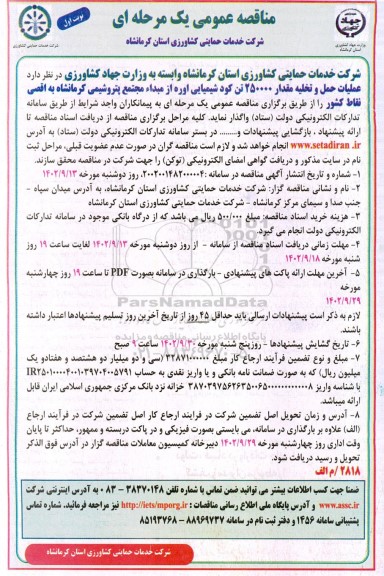 مناقصه عمومی یک مرحله ای
نوبت اول
شرکت خدمات حمایتی کشاورزی استان کرمانشاه
شرکت خدمات حمایتی کشاورزی استان کرمانشاه وابسته به وزارت جهاد کشاورزی در نظر دارد
عملیات حمل و تخلیه مقدار ۲۵۰۰۰۰ تن کود شیمیایی اوره از مبداء مجتمع پتروشیمی کرمانشاه به اقصی
نقاط کشور را از طریق برگزاری مناقصه عمومی یک مرحله ای به پیمانکاران واجد شرایط از طریق سامانه
تدارکات الکترونیکی دولت (ستاد) واگذار نماید. کلیه مراحل برگزاری مناقصه از دریافت اسناد مناقصه تا
ارائه پیشنهاد ، بازگشایی پیشنهادات و........ در بستر سامانه تدارکات الکترونیکی دولت (ستاد) به آدرس
www.setadiran.ir انجام خواهد شد و لازم است مناقصه گران در صورت عدم عضویت قبلی، مراحل ثبت
نام در سایت مذکور و دریافت گواهی امضای الکترونیکی (توکن) را جهت شرکت در مناقصه محقق سازند.
۱- شماره و تاریخ انتشار آگهی مناقصه در سامانه : روز دوشنبه مورخه ۱۴۰۲/۹/۱۳
۲- نام و نشانی مناقصه گزار: شرکت خدمات حمایتی کشاورزی استان کرمانشاه، به آدرس میدان سپاه -
جنب صدا و سیمای مرکز کرمانشاه - شرکت خدمات حمایتی کشاورزی استان کرمانشاه
۳- هزینه خرید اسناد مناقصه: مبلغ ۵۰۰/۰۰۰ ریال می باشد که از درگاه بانکی موجود در سامانه تدارکات
الکترونیکی دولت انجام می گیرد.
۴- مهلت زمانی دریافت اسناد مناقصه از سامانه - از روز دوشنبه مورخه ۱۴۰۲/۹/۱۳ لغایت ساعت ۱۹ روز
شنبه مورخه ۱۴۰۲/۹/۱۸
۵- آخرین مهلت ارائه پاکت های پیشنهادی - بارگذاری در سامانه بصورت PDF تا ساعت ۱۹ روز چهارشنبه
مورخه
۱۴۰۲/۹/۲۹
لازم به ذکر است پیشنهادات ارسالی باید حداقل ۴۵ روز از تاریخ آخرین روز تسلیم پیشنهادها اعتبار داشته
باشند.
۶- تاریخ گشایش پیشنهادها - روز پنج شنبه مورخه ۱۴۰۲/۹/۳۰ ساعت ۹ صبح
۷- مبلغ و نوع تضمین فرآیند ارجاع کار مبلغ ۳۲۸۷۱۰۰۰۰۰۰ (سی و دو میلیارد و هشتصد و هفتاد و یک
میلیون ریال) که به صورت ضمانت نامه بانکی و یا واریز نقدی به حساب
با شناسه واریز خزانه نزد بانک مرکزی جمهوری اسلامی ایران قابل
ارائه میباشد.
۸- آدرس و زمان تحویل اصل تضمین شرکت در فرآیند ارجاع کار اصل تضمین شرکت در فرآیند ارجاع
(الف) علاوه بر بارگذاری در سامانه، می بایستی بصورت فیزیکی و در پاکت دربسته و ممهور، حداکثر تا پایان
وقت اداری روز چهارشنبه مورخه ۱۴۰۲/۹/۲۹ دبیرخانه کمیسیون معاملات مناقصه گزار در آدرس فوق الذکر
تحویل و رسید دریافت شود.
۲۸۱۸ /م الف
ضمنا جهت کسب اطلاعات بیشتر می توانید ضمن تماس با شماره تلفن ۳۸۳۷۰۱۴۸ - ۰۸۳ به آدرس اینترنتی شرکت
www.assc.ir و آدرس پایگاه ملی اطلاع رسانی مناقصات : http://iets/mporg.ir نیز مراجعه فرمائید. شماره تماس
پشتیبانی سامانه ۱۴۵۶ و دفتر ثبت نام در سامانه ۸۸۹۶۹۷۳۷ - ۸۵۱۹۳۷۶۸
شرکت خدمات حمایتی کشاورزی استان کرمانشاه